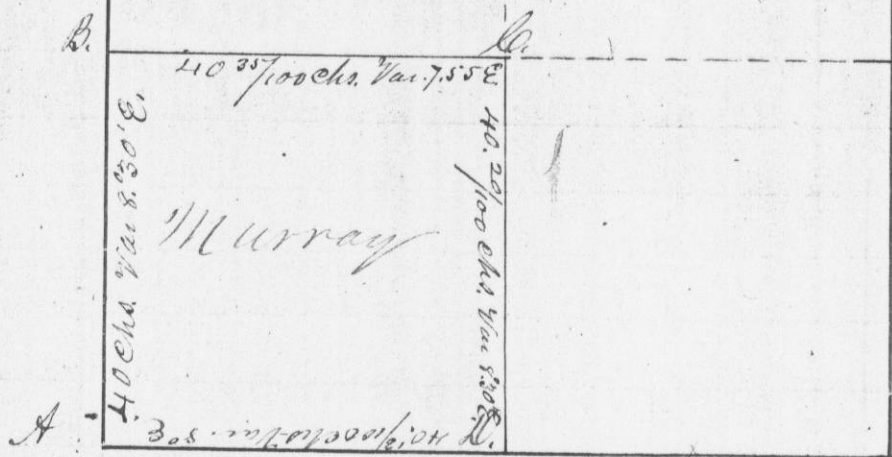 B.
C.
40 35/100 chs. Var. 7.55 E
40 chs. Var 8.°30' E.
Murray
40. 20/100 chs Var 8.°30' E.
A
D.
chs Var. 8° E